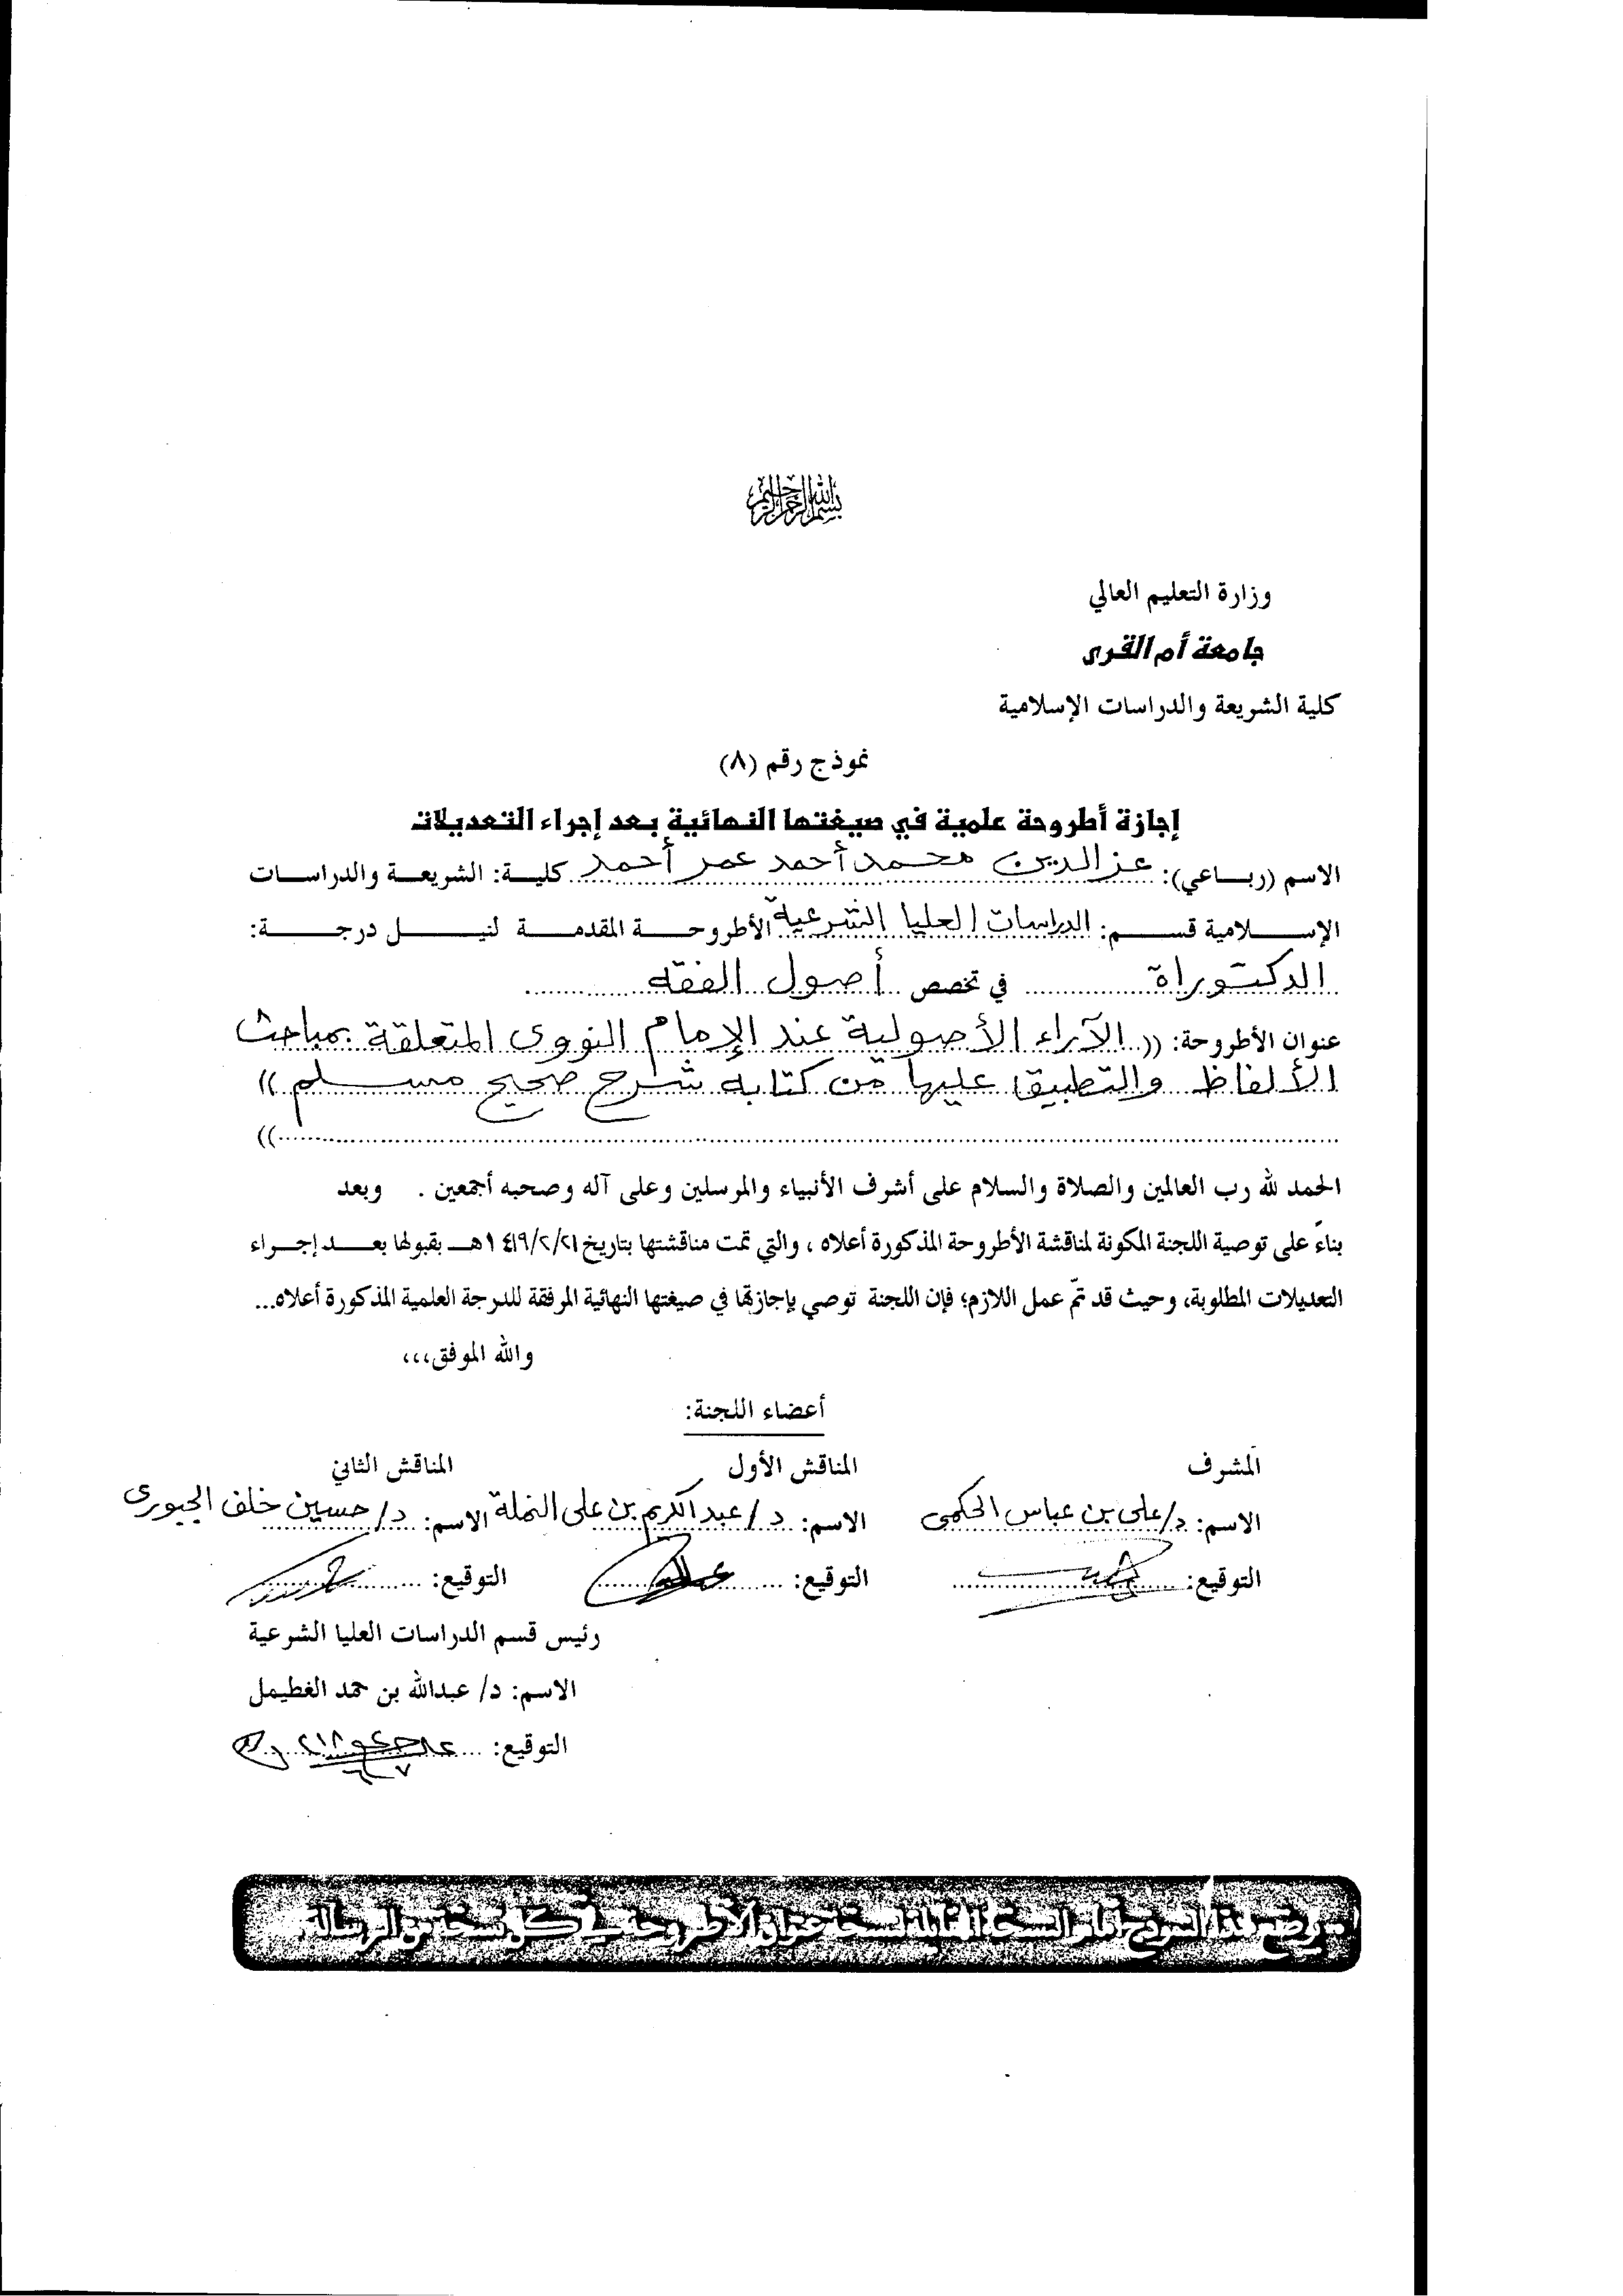 بسم الله الرحمن الرحيم
وزارة التعليم العالي
جامعة أم القرى
كلية الشريعة والدراسات الإسلامية
نموذج رقم (٨)
إجازة أطروحة علمية في صيغتها النهائية بعد إجراء التعديلات
الاسم (رباعي): عز الدين محمد أحمد عمر أحمد كلية: الشريعة والدراسات
الإسلامية قسم: الدراسات العليا الشرعية الأطروحة المقدمة لنيل درجة:
الدكتوراة في تخصص أصول الفقه
عنوان الأطروحة: (( الآراء الأصولية عند الإمام النووى المتعلقة بمباحث
الألفاظ والتطبيق عليها من كتابه شرح صحيح مسلم ))
))
الحمد لله رب العالمين والصلاة والسلام على أشرف الأنبياء والمرسلين وعلى آله وصحبه أجمعين . وبعد
بناءً على توصية اللجنة المكونة لمناقشة الأطروحة المذكورة أعلاه ، والتي تمت مناقشتها بتاريخ ١٤١٩/٢/٢١هـ بقبولها بعد إجراء
التعديلات المطلوبة، وحيث قد تمّ عمل اللازم؛ فإن اللجنة توصي بإجازتها في صيغتها النهائية المرفقة للدرجة العلمية المذكورة أعلاه...
والله الموفق،،،
أعضاء اللجنة:
المشرف المناقش الأول المناقش الثاني
الاسم: د/على بن عباس الحكمى الاسم: د/عبد الكريم بن على النملة الاسم: د/حسين خلف الجبورى
التوقيع: التوقيع: التوقيع:
رئيس قسم الدراسات العليا الشرعية
الاسم: د/ عبدالله بن حمد الغطيمل
التوقيع:
- يوضع هذا النموذج أمام النسخة المقابلة لنسخة عنوان الأطروحة في كل نسخة من الرسالة.